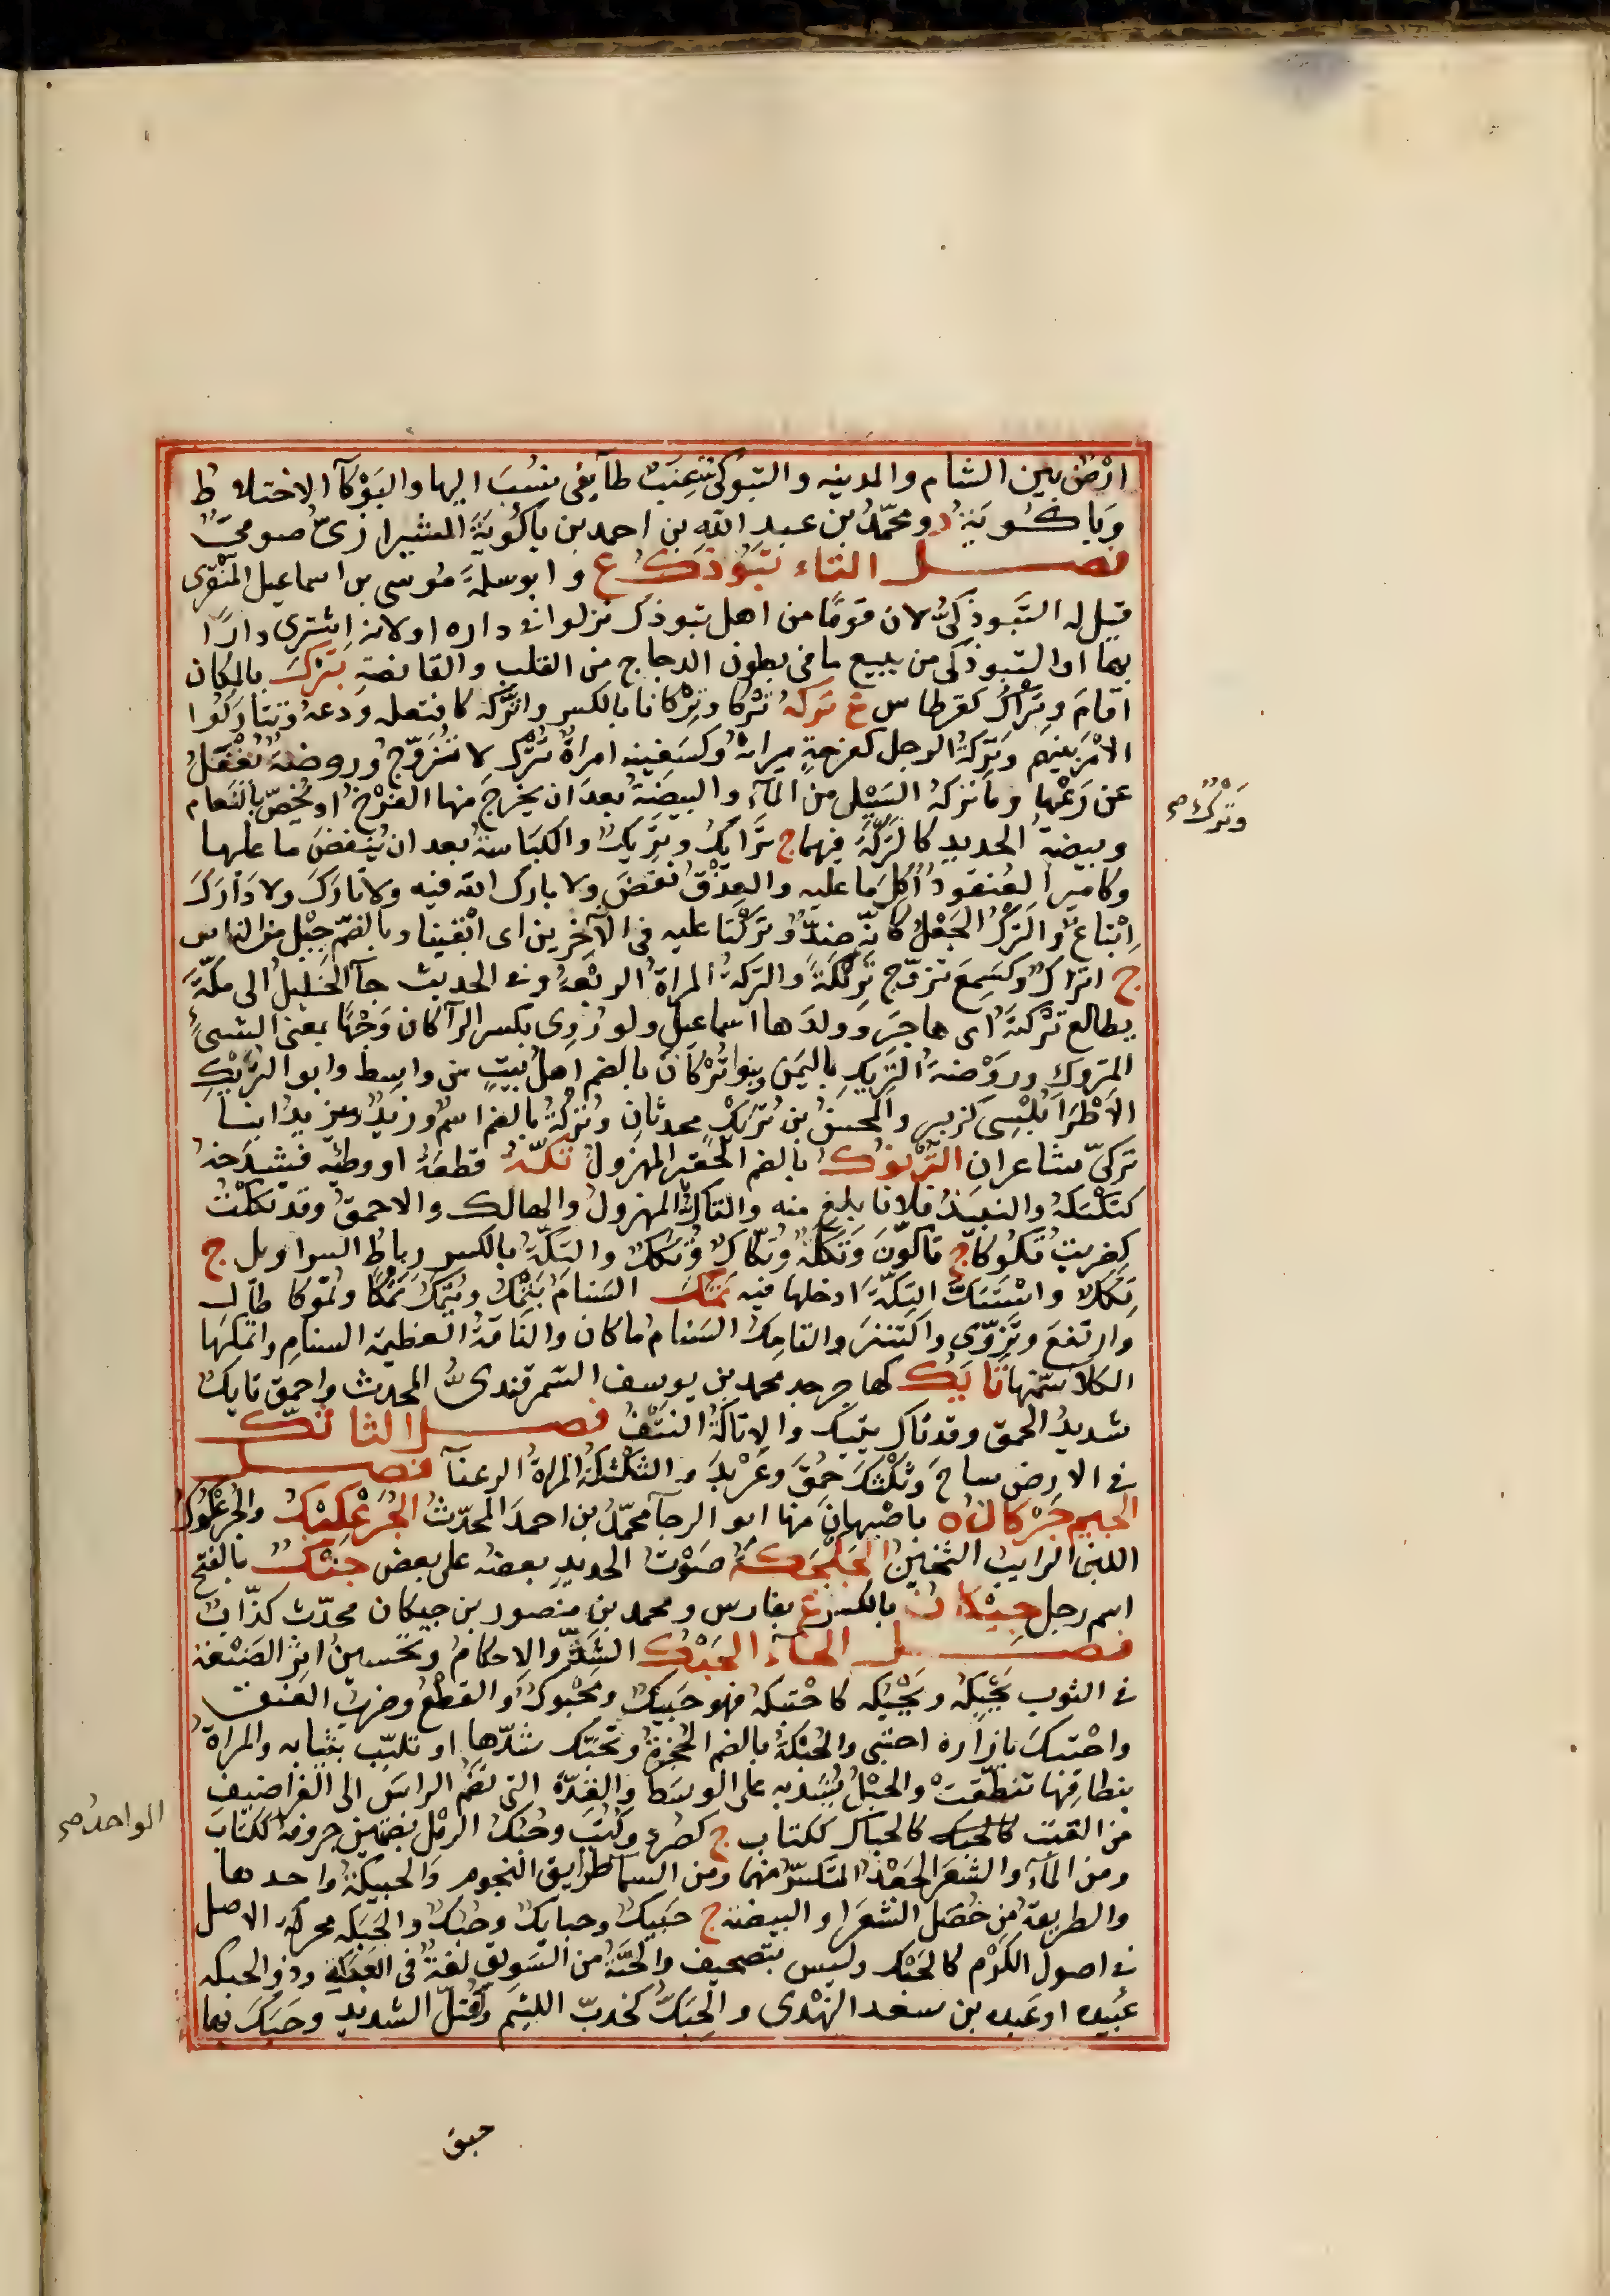 ارْضٌ بين الشام والمدينه والتبوكيُّ عِنَبٌ طآيفى نسُبَ اليها والبَوْكآ الاختلاط
وَباكُويَةُ د ومحمّدُ بن عبدِ اللّه بن احمد بن باكُويَةَ الشيرازىّ صوفىّ
فصل التاء تَبُوذَكُ ع وابو سلمةَ مُوسى بن اسماعيل المنْقَرِى
قيل له التَّبوذكىُّ لان قومًا من اهل تبوذك نزلوا فى داره او لانه اشترى دارًا
بها او التبوذكى من يبيع ما فى بطون الدجاج من القلب والقانصةِ تَبْرَكَ بالمكان
اقامَ وتِبْراكُ كقرطاس ع تَركَهُ تَرْكا وتِرْكانا بالكسر واتَّركه كافتعله ودعهُ وتتاركُوا
الامْرَ بينهم وتَرِكَةُ الرجل كفرحةٍ ميراثهُ وكسَفينه امراةٌ تُتْرك لا تتزوّج وروضةٌ يُغْفَلُ
عن رَعْيها وما تركهُ السَّيْل من المآءِ والبيضةُ بعد ان يخرج منها الفرْخُ او يُخصّ بالنعام
وبيضةُ الحديد كالتَّرْكَةِ فيهما ج تَرايكُ وتريكٌ والكِبَاسةُ بعد ان يُنفضَ ما عليها
وكاميرٍ العُنقودُ اُكِلَ ما عليه والعِذْقُ نُفضَ ولا بارك اللّه فيه ولا تارَكَ ولا دَارَكَ
اِتْباعٌ والتَّرْكُ الجَعْلُ كانّه ضِدٌّ وتَرَكْنا عليه فى الآخرين اى ابْقينا وبالضم جِيْل من الناس
ج اتراك وكسَمِعَ تزوّج تَريكةً والتَركةُ المراةُ الربْعةُ وفى الحديث جآ الخليلُ الى مكّةَ
يطالع تَرْكتَهُ اى هاجَرَ وولدَها اسماعيل ولو رُوِى بكسر الرآ كان وَجْهًا بمعنى الشىءِ
المتروكِ وروْضةُ التَّريكِ باليمن وبنو تُرْكانَ بالضم اهلُ بيتٍ من واسِط وابو التُّريكِ
الاَطْرَابُلسِى كزبير والمحسنُ بن تُرَيكٍ محدثانِ وتُرْكةُ بالضم اسم وزيدٌ ويزيدُ ابنا
تركىّ شاعران التُّرْنُوكُ بالضم الحقير المهزول تَكَّهُ قطعَهُ او وطئِه فشَدَخهُ
كتَكْتَكهُ والنبيذُ فلانا بلغ منه والتاكُّ المهزولُ والهالك والاحمقُ وقد تكَكْتُ
كضربتُ تُكُوكًا ج تاكّونَ وتَكَكَةٌ وتُكّاكٌ وتُكَكٌ والتِكّةُ بالكسر رِباطُ السراويل ج
تِكَكٌ واسْتَتَكَّ التِكّةَ ادخلها فيه تَمَكَ السَنامُ يَتْمِكُ ويَتْمُكُ تَمْكًا وتُمُوكا طال
وارتفعَ وتَروّى واكتنزَ والتامِكُ السَنامُ ما كان والناقةُ العظيمة السنامِ واتْمكها
الكلا سمّنها تَايكُ كهاجر جد محمد بن يوسف السّمرقندىُّ المحدث واحمق تايكٌ
شديدُ الحمق وقد تاك يتيك والاتاكةُ النتْفُ فصل الثا ثَكَّ
فى الارض ساحَ وثَكْثكَ حَمُقَ وعَرْبَدَ والثَكْثكةُ المراة الرعنآ فصل
الجيم جَرْكانُ ه باصْبهان منها ابو الرجآ محمّدُ بن احمدَ المحدّثُ الجُرَعْكِيْكُ والجُرعْكُوكُ
اللبن الرايب الثخين الجَلْجَكةُ صَوْتُ الحديدِ بعضه على بعض جَنْكٌ بالفتح
اسم رجل جِيْكانُ بالكسر ع بفارس ومحمد بن منصور بن جيكان محدّث كذّاب
فصل الحآء الحَبْكُ الشدّ والاحكامُ وتحسين اثرِ الصَنْعةِ
فى الثوب يَحْبِكُه ويَحْبُكه كاحْتبكهُ فهو حَبيكٌ ومحْبوكٌ والقطْعُ وضربُ العنق
واحْتبكَ بازاره احتبى والحُبْكةُ بالضم الحُجْزةُ وتحبّك شدّها او تلبّب بثيابه والمراةُ
بنطاقها تنطّقتْ والحَبْلُ يُشدّ به على الوسَط والقِدّةُ التى تضمّ الراسَ الى الغراضيف
من القتب كالحبك كالحباك ككتاب ج كصُرَدٍ وكُتُبٍ وحُبُكُ الرمْل بضمتين حروفهُ ككتاب
ومن المآءِ والشعَرِ الجَعْدُ المتكسِّرُ منهما ومن السما طرايق النجوم والحبيكةُ واحدها
والطريقةُ من خُصَل الشعَر او البيضة ج حَبيكٌ وحبايكٌ وحُبُكٌ والحَبَكه محركةً الاصل
فى اصول الكَرْم كالحَبَك وليس بتصحيف والحَبّةُ من السَويق لغةٌ فى العَبَكَةِ وذو الحبكه
عُبيده او عَبده بن سعد النهْدى والحِبَكُّ كخدبّ اللئيم والعُتلّ الشديد وحَبَكَ بها
وتَركٌ صح
الواحدُ صح
حبق